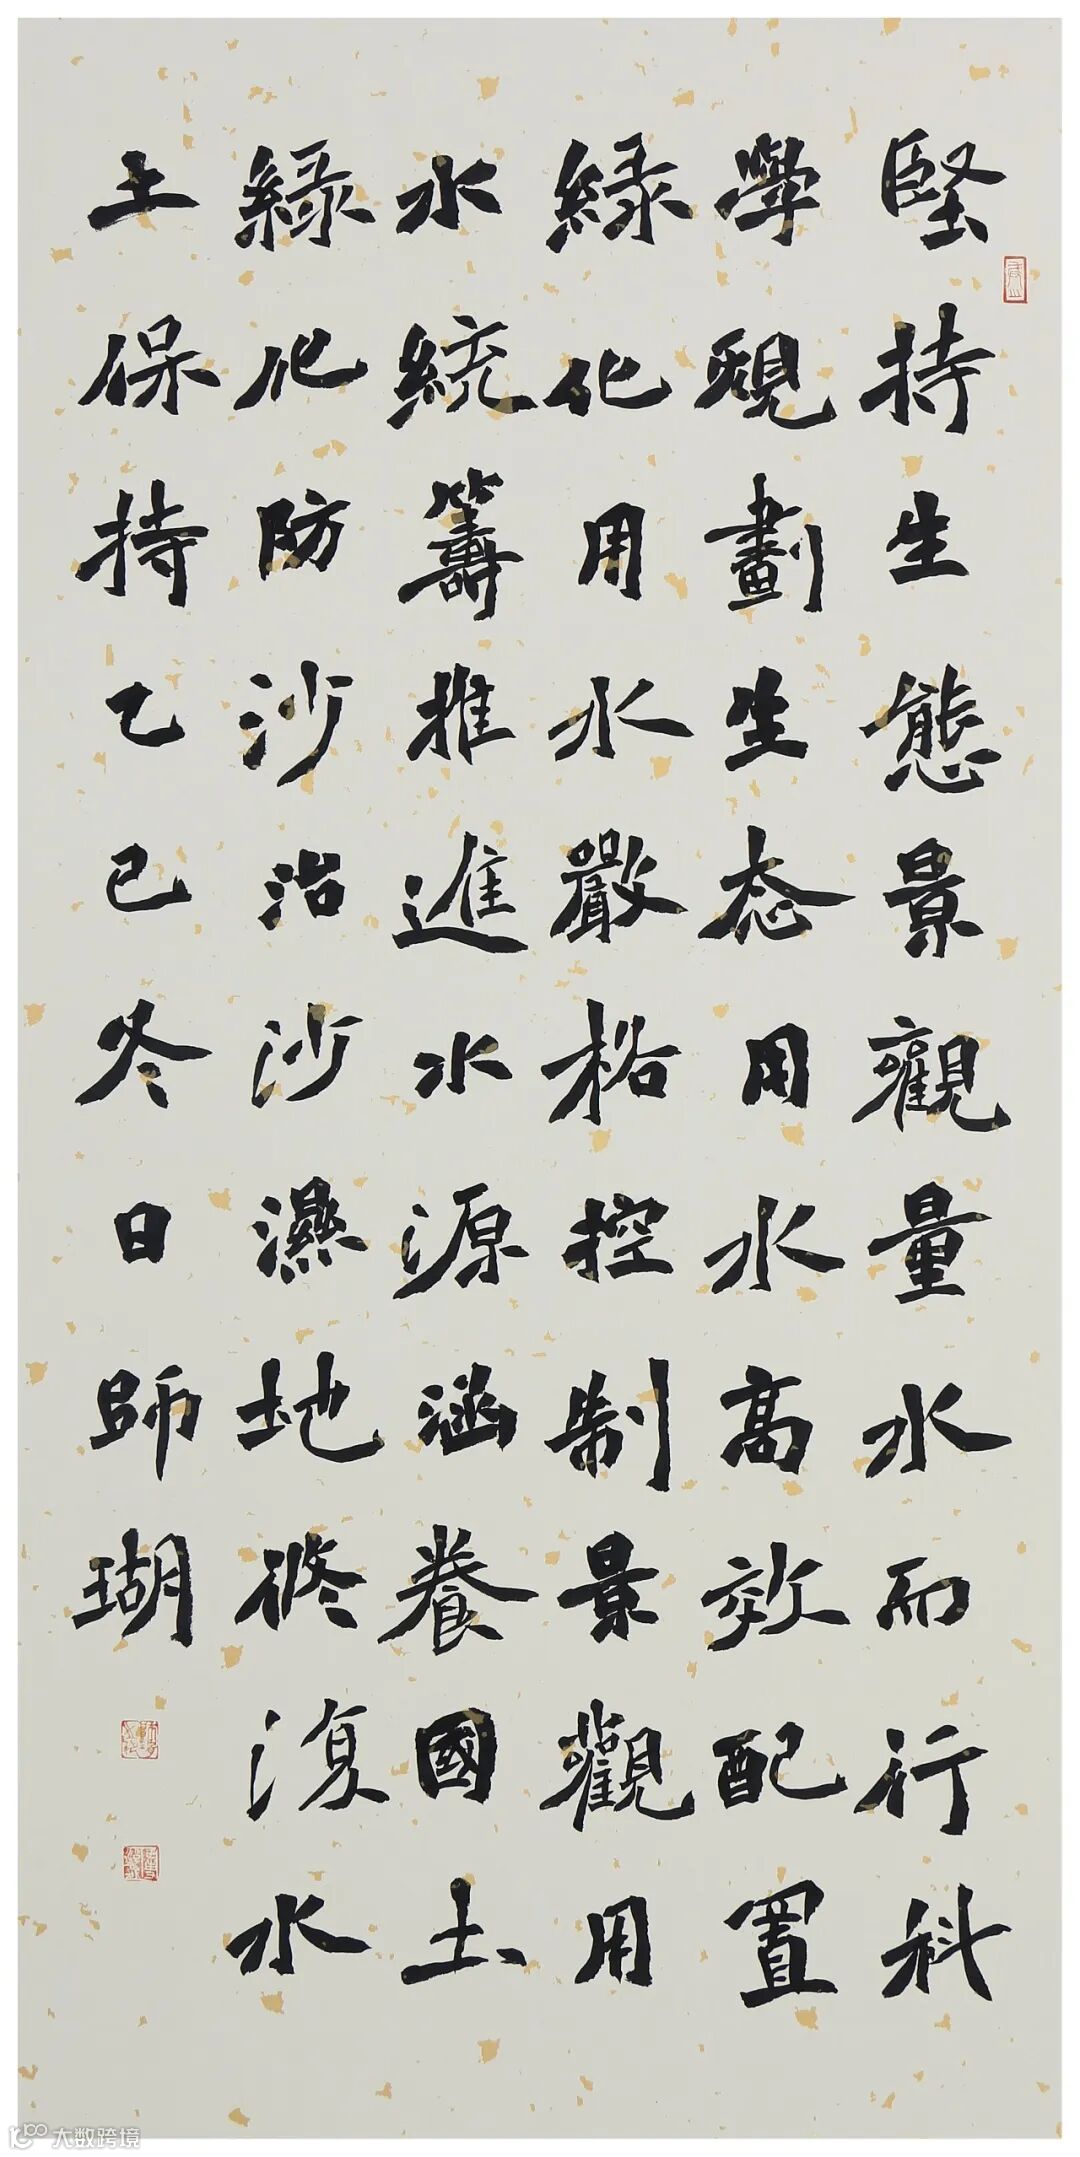 堅持生態景觀量水而行科
學規劃生态用水高效配置
緑化用水嚴格控制景觀用
水統籌推進水源涵養國土
緑化防沙治沙濕地修復水
土保持乙巳冬日師瑚
大数跨境